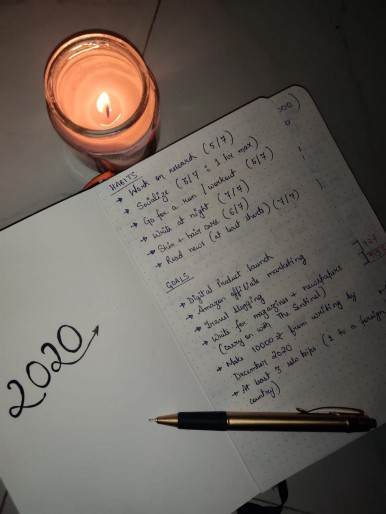 2020
HABITS
→ Work on research (5/7)
→ Socialize (5/7 : 1 hr max)
→ Go for a run / workout (5/7)
→ Write at night (7/7)
→ Skin + hair care (6/7)
→ Read news (at least shorts) (7/7)
GOALS
→ Digital Product Launch
→ Amazon affiliate marketing
→ Travel blogging
→ Write for magazines + newspapers
(carry on with The Sentinel)
→ Make 10000 ₹ from writing by
December 2020
→ At least 3 solo trips (1 to a foreign
country)